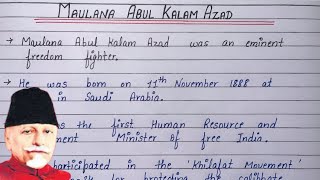 MAULANA ABUL KALAM AZAD
→ Maulana Abul Kalam Azad was an eminent
freedom fighter.
→ He was born on 11th November 1888 at
in Saudi Arabia.
the first Human Resource and
Minister of free India.
participated in the 'Khilafat Movement'
for protecting the caliphate